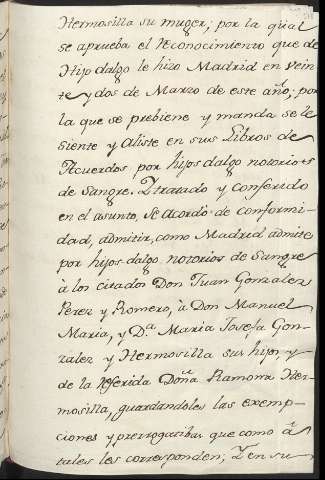 Hermosilla su muger; por la qual
se aprueba el reconocimiento que de
Hijo dalgo le hizo Madrid en vein-
te y dos de Marzo de este año; por
la que se prebiene y manda se le
siente y Aliste en sus Libros de
Acuerdos por hijos dalgo notorios
de Sangre. Y tratado y conferido
en el asunto, se acordó de conformi-
dad, admitir, como Madrid admite
por hijos dalgo notorios de Sangre
à los citados Don Juan Gonzalez
Perez y Romero, à Don Manuel
Maria, y Dª Maria Josefa Gon-
zalez y Hermosilla sus hijos, y
de la referida Doña Ramona Her-
mosilla, guardandoles las exemp-
ciones y prerrogatibas que como à
tales les corresponden; Y en su